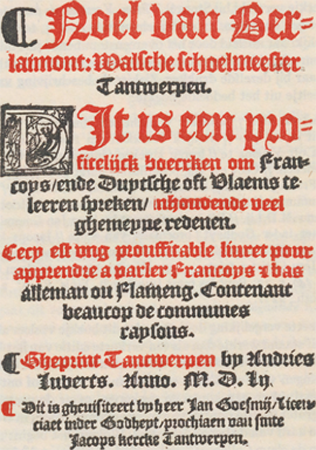 ¶ Noel van Ber-
latmont: Walsche schoelmeester
Tantwerpen.
DIt is een pro-
fitelijck boecxken om Fran-
coys/ende Duytsche oft Vlaems te
leeren spreken/ inhoudende veel
ghemeyne redenen.
Cecy est vng prouffitable liuret pour
apprendre a parler Francoys & bas
alleman ou Flameng. Contenant
beaucop de communes
raysons.
¶ Gheprint Tantwerpen by Andries
Iuberts. Anno. M. D. Lij.
¶ Dit is ghevisiteert by heer Jan Goesmij/Licen-
ciaet inder Godheyt/prochiaen van sinte
Jacops kercke Tantwerpen.